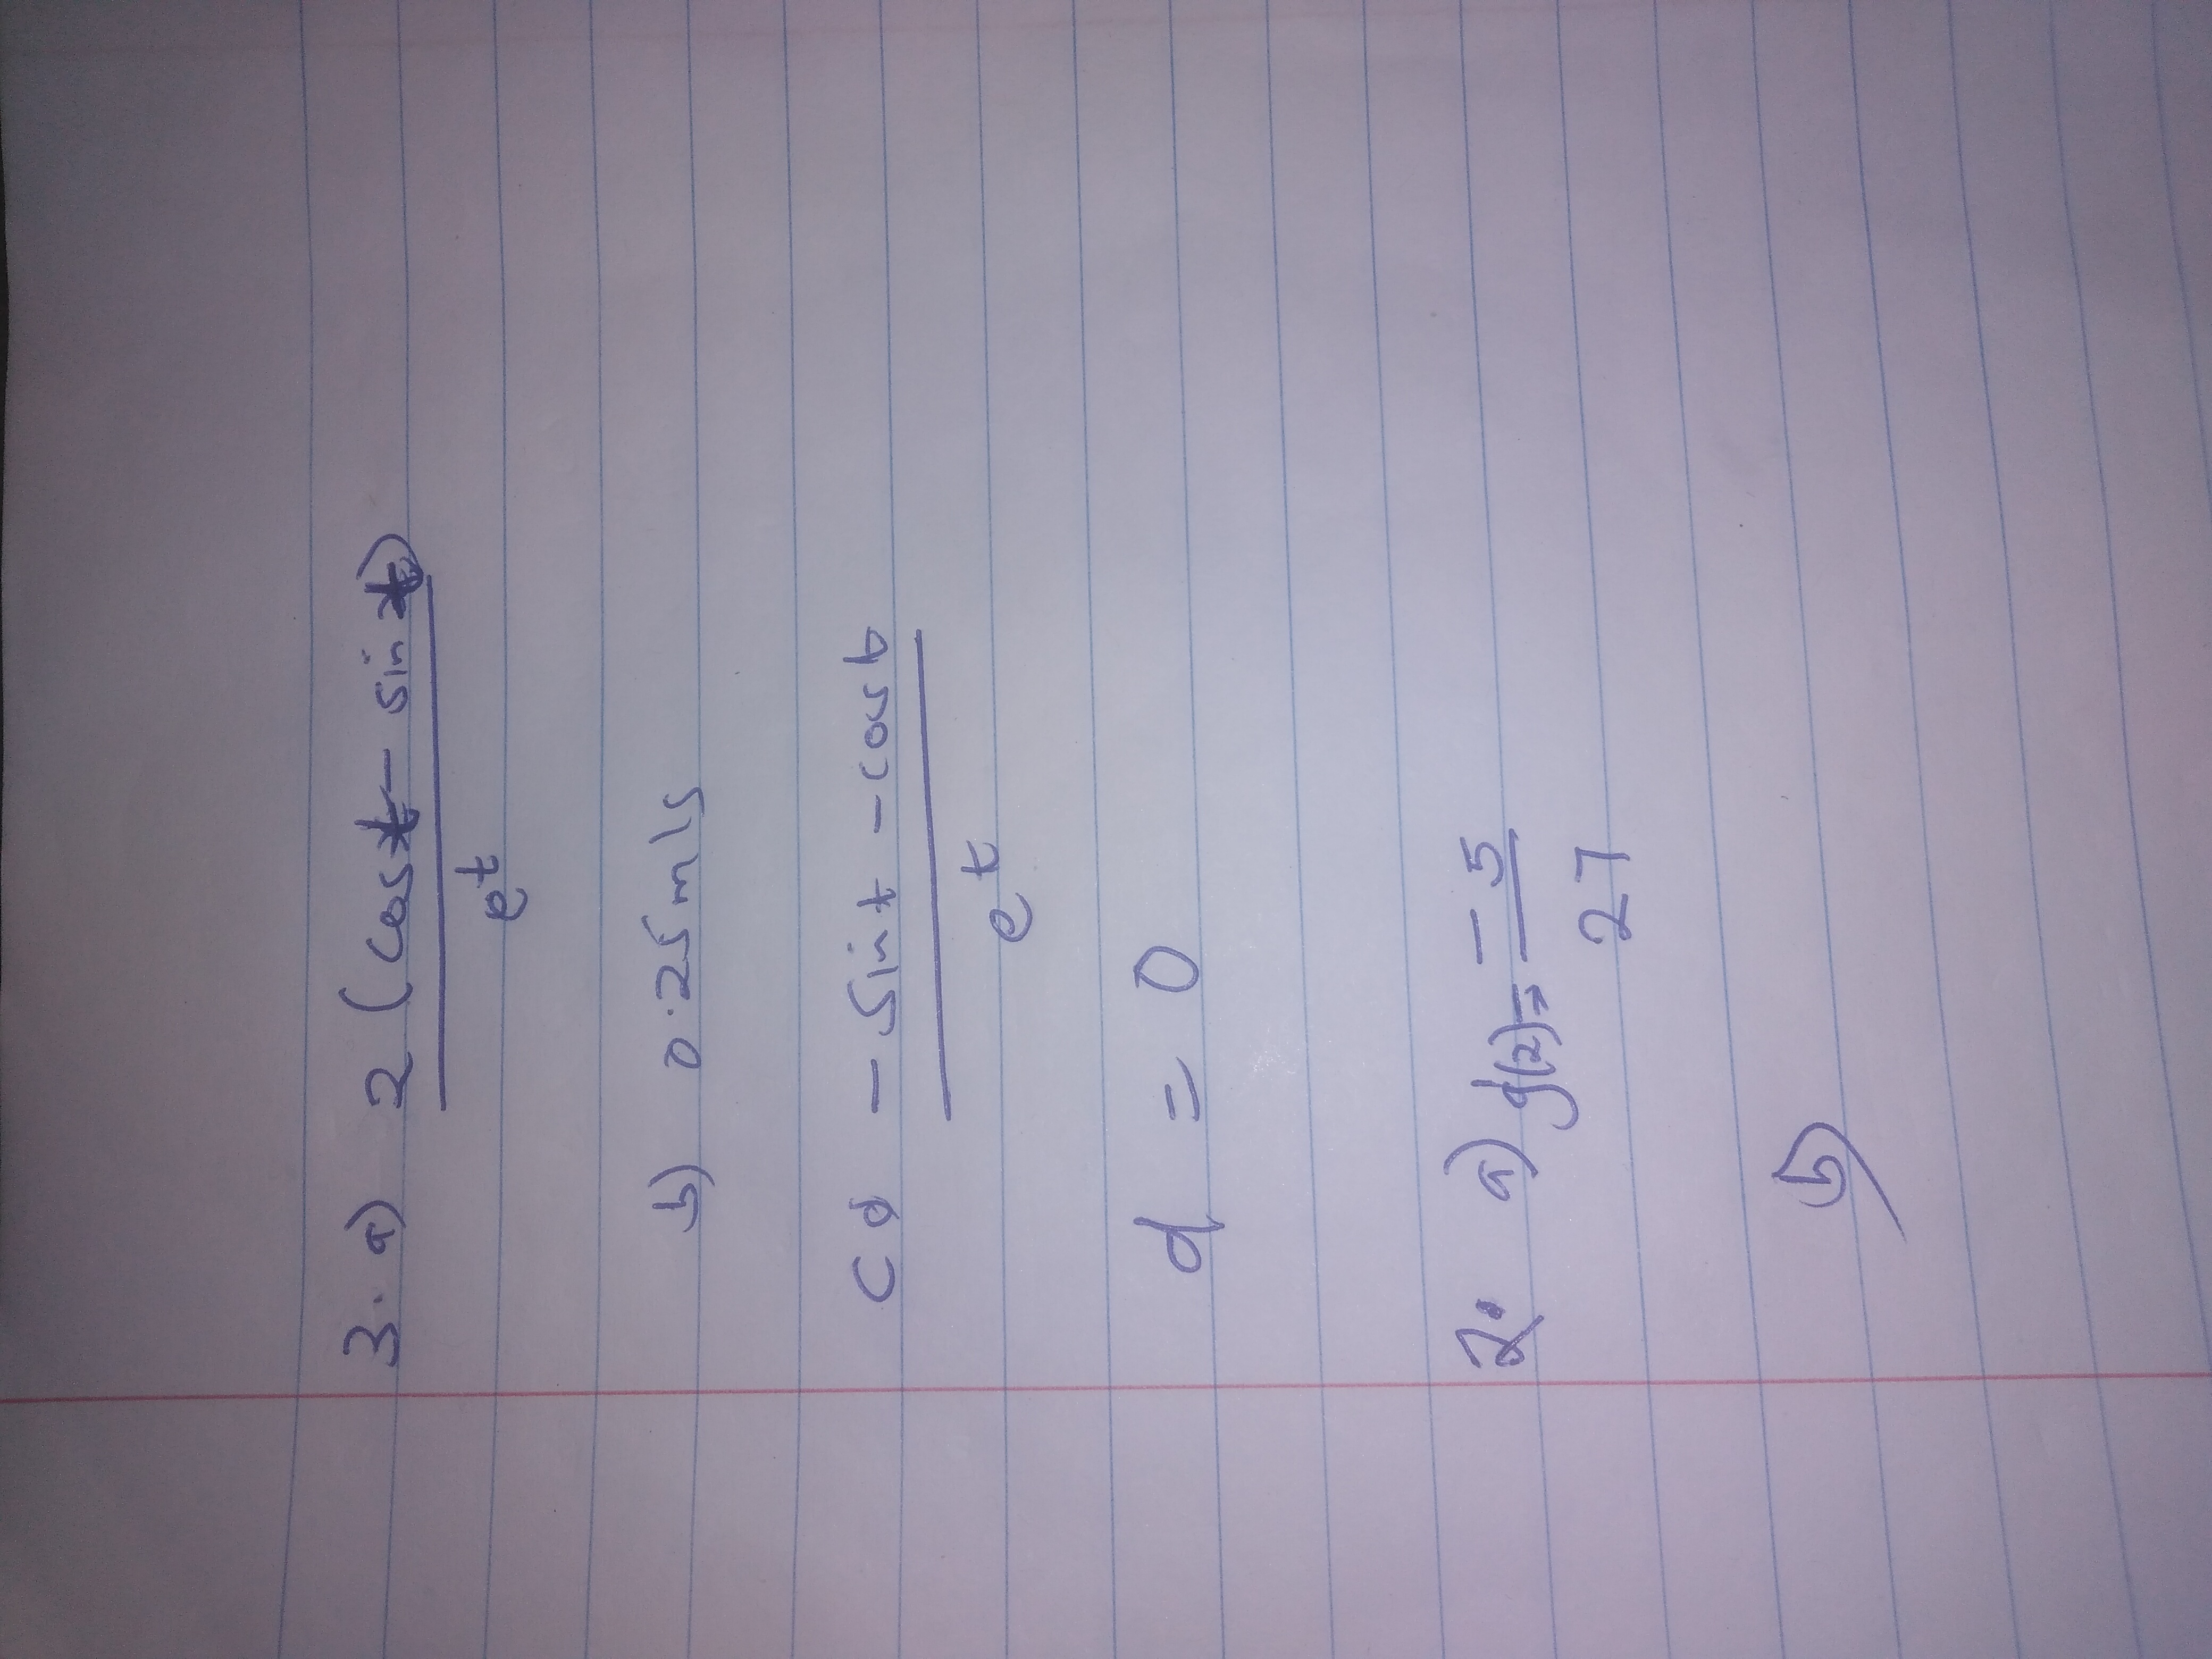 3. a) 2 (cost - sint)
e^t
b) 0.25 m/s
c - sint - cost
e^t
d = 0
2. a) g'(2) = -5
27
b)